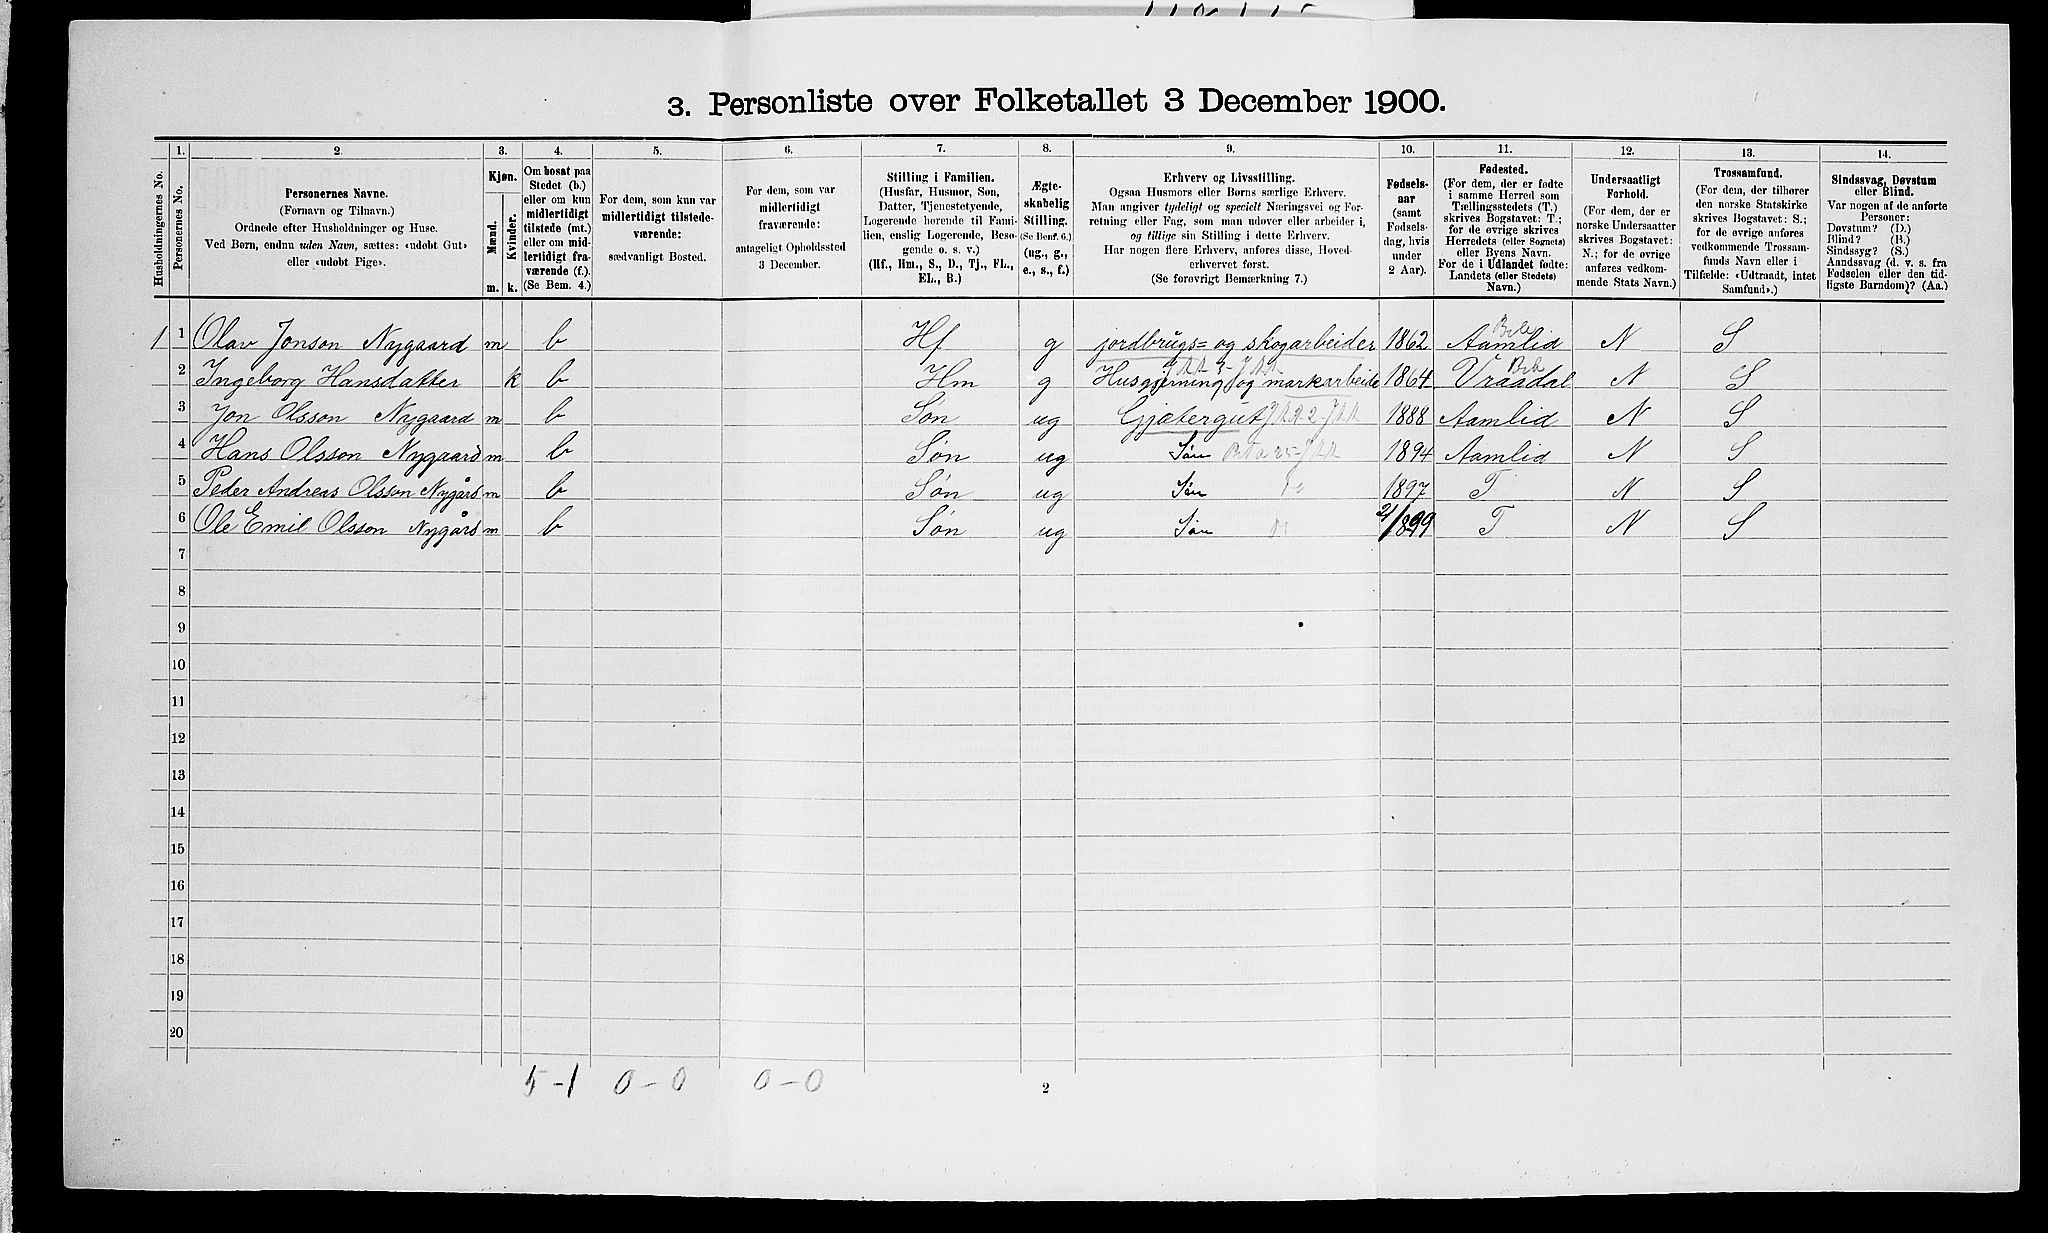 3. Personliste over Folketallet 3 December 1900.
1. 2. 3. 4. 5. 6. 7. 8. 9. 10. 11. 12. 13. 14.
Husholdningernes No.
Personernes No.
Personernes Navne.
(Fornavn og Tilnavn.)
Ordnede efter Husholdninger og Huse.
Ved Børn, endnu uden Navn, sættes: «udøbt Gut»
eller «udøbt Pige».
Kjøn.
Mænd.
Kvinder.
m. k.
Om bosat paa
Stedet (b.)
eller om kun
midlertidigt
tilstede (mt.)
eller om mid-
lertidigt fra-
værende (f.).
(Se Bem. 4.)
For dem, som kun var
midlertidigt tilstede-
værende:
sædvanligt Bosted.
For dem, som var
midlertidigt
fraværende:
antageligt Opholdssted
3 December.
Stilling i Familien.
(Husfar, Husmor, Søn,
Datter, Tjenestetyende,
Logerende hørende til Fami-
lien, enslig Logerende, Besø-
gende o. s. v.)
(Hf., Hm., S., D., Tj., FL.,
EL., B.)
Ægte-
skabelig
Stilling.
(Se Bem. 6.)
(ug., g.,
e., s., f.)
Erhverv og Livsstilling.
Ogsaa Husmors eller Børns særlige Erhverv.
Man angiver tydeligt og specielt Næringsvei og For-
retning eller Fag, som man udøver eller arbeider i,
og tillige sin Stilling i dette Erhverv.
Har nogen flere Erhverv, anføres disse, Hoved-
erhvervet først.
(Se forøvrigt Bemærkning 7.)
Fødsels-
aar
(samt
Fødsels-
dag, hvis
under
2 Aar).
Fødested.
(For dem, der er fødte
i samme Herred som
Tællingsstedets (T.)
skrives Bogstavet: T.;
for de øvrige skrives
Herredets (eller Sognets)
eller Byens Navn.
For de i Udlandet fødte:
Landets (eller Stedets)
Navn.)
Undersaatligt
Forhold.
(For dem, der er
norske Undersaatter
skrives Bogstavet:
N.; for de øvrige
anføres vedkom-
mende Stats Navn.)
Trossamfund.
(For dem, der tilhører
den norske Statskirke
skrives Bogstavet: S.;
for de øvrige anføres
vedkommende Trossam-
funds Navn eller i
Tilfælde: «Udtraadt, intet
Samfund».)
Sindssvag, Døvstum
eller Blind.
Var nogen af de anførte
Personer:
Døvstum? (D.)
Blind? (B.)
Sindssyg? (S.)
Aandssvag (d. v. s. fra
Fødselen eller den tid-
ligste Barndom)? (Aa.)
1 1 Olav Jonson Nygaard m b Hf g jordbrugs= og skogarbeider 1862 Aamlid N S
2 Ingeborg Hansdatter k b Hm g Husgjerning og markarbeide 1864 Vraadal N S
3 Jon Olsson Nygaard m b Søn ug Gjætergut 1888 Aamlid N S
4 Hans Olsson Nygaard m b Søn ug Søn 1894 Aamlid N S
5 Peder Andreas Olsson Nygård m b Søn ug Søn 1897 T N S
6 Ole Emil Olsson Nygård m b Søn ug Søn 1899 T N S
7
8
9
10
11
12
13
14
15
16
17
18
19
20
5-1 0-0 0-0
2